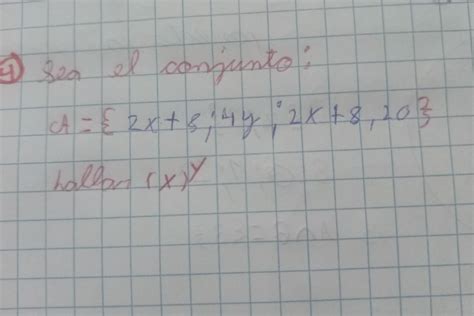 4) Sea el conjunto:
A = { 2x + 8 ; 4y ; 2x + 8 , 20 }
hallar (x)^y